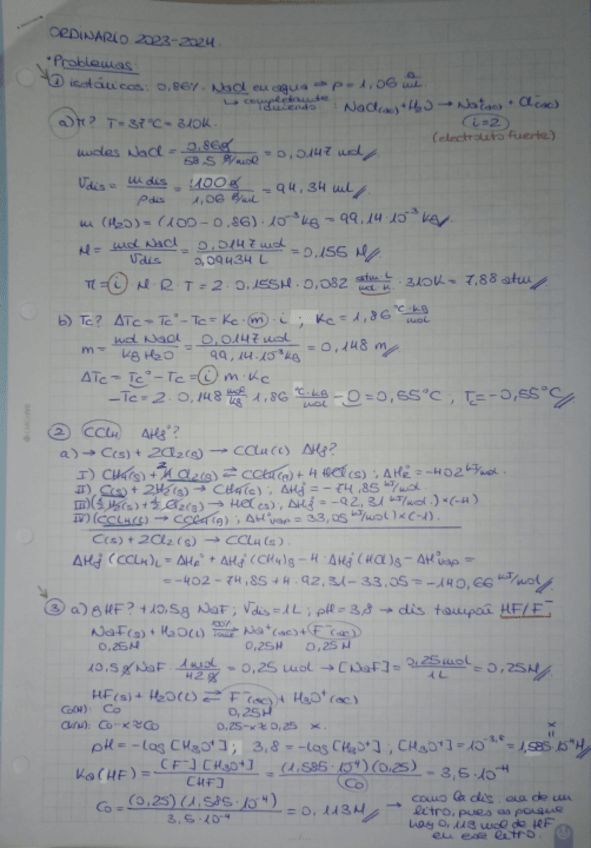 ORDINARIO 2023-2024.
• Problemas
① isotónicos: 0,86% NaCl en agua ⇒ ρ = 1,06 g/ml
↳ completamente ionizado : NaCl(ac) + H2O → Na+(ac) + Cl-(ac)
i=2
(electrolito fuerte)
a) π? T = 37°C = 310K.
moles NaCl = 0,86g / 58,5 g/mol = 0,0147 mol
Vdis = m dis / ρ dis = 100 g / 1,06 g/ml = 94,34 ml
m (H2O) = (100 - 0,86) · 10^-3 kg = 99,14·10^-3 kg
M = mol NaCl / Vdis = 0,0147 mol / 0,09434 L = 0,155 M
π = i · M · R · T = 2 · 0,155M · 0,082 atm·L / mol·K · 310K = 7,88 atm
b) Tc? ΔTc = Tc° - Tc = Kc · m · i ; Kc = 1,86 °C·kg/mol
m = mol NaCl / kg H2O = 0,0147 mol / 99,14·10^-3 kg = 0,148 m
ΔTc = Tc° - Tc = i m · Kc
-Tc = 2 · 0,148 mol/kg 1,86 °C·kg/mol - 0 = 0,55°C ; Tc = -0,55°C
② CCl4 ΔHf°?
a) → C(s) + 2Cl2(g) → CCl4(l) ΔHf?
I) CH4(g) + 4Cl2(g) ⇌ CCl4(g) + 4 HCl(g) ; ΔHR° = -402 kJ/mol.
II) C(s) + 2H2(g) → CH4(g) ; ΔHf° = -74,85 kJ/mol.
III) (½H2(g) + ½Cl2(g) → HCl(g) ; ΔHf° = -92,31 kJ/mol.) × (-4)
IV) (CCl4(l) → CCl4(g) ; ΔH°vap = 33,05 kJ/mol) × (-1).
C(s) + 2Cl2(g) → CCl4(s).
ΔHf° (CCl4)L = ΔHR° + ΔHf°(CH4)g - 4·ΔHf°(HCl)g - ΔH°vap =
= -402 - 74,85 + 4·92,31 - 33,05 = -140,66 kJ/mol
③ a) g HF? + 10,5g NaF ; Vdis = 1L ; pH = 3,8 → dis. tampón HF/F-
NaF(s) + H2O(l) 100% → Na+(ac) + F-(ac)
0,25M 0,25M 0,25M
10,5 g NaF · 1 mol / 42 g = 0,25 mol → [NaF] = 0,25 mol / 1L = 0,25M
HF(s) + H2O(l) ⇌ F-(ac) + H3O+(ac)
Co(M): Co 0,25M
Co-x≈Co 0,25-x≈0,25 x.
pH = -log [H3O+] ; 3,8 = -log [H3O+] , [H3O+] = 10^-3,8 = 1,585·10^-4 M
x
Ka(HF) = [F-][H3O+] / [HF] = (1,585·10^-4)(0,25) / Co = 3,5·10^-4
Co = (0,25)(1,585·10^-4) / 3,5·10^-4 = 0,113M → como la dis. era de un litro, pues es porque hay 0,113 mol de HF en ese litro.